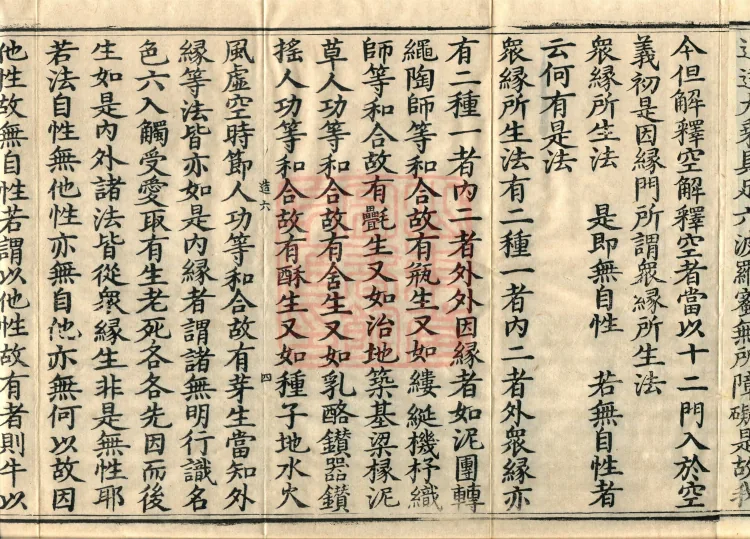 具足六波羅蜜無所障礙是故我
今但解釋空解釋空者當以十二門入於空
義初是因緣門所謂衆緣所生法
衆緣所生法　是即無自性　若無自性者
云何有是法
衆緣所生法有二種一者內二者外衆緣亦
有二種一者內二者外外因緣者如泥團轉
繩陶師等和合故有瓶生又如縷綖機杼織
師等和合故有氎生又如治地築基梁椽泥
草人功等和合故有舍生又如乳酪鑚器鑚
搖人功等和合故有酥生又如種子地水火
造六　四
風虛空時節人功等和合故有芽生當知外
緣等法皆亦如是內緣者謂諸無明行識名
色六入觸受愛取有生老死各各先因而後
生如是內外諸法皆從衆緣生非是無性耶
若法自性無他性亦無自他亦無何以故因
他性故無自性若謂以他性故有者則牛以